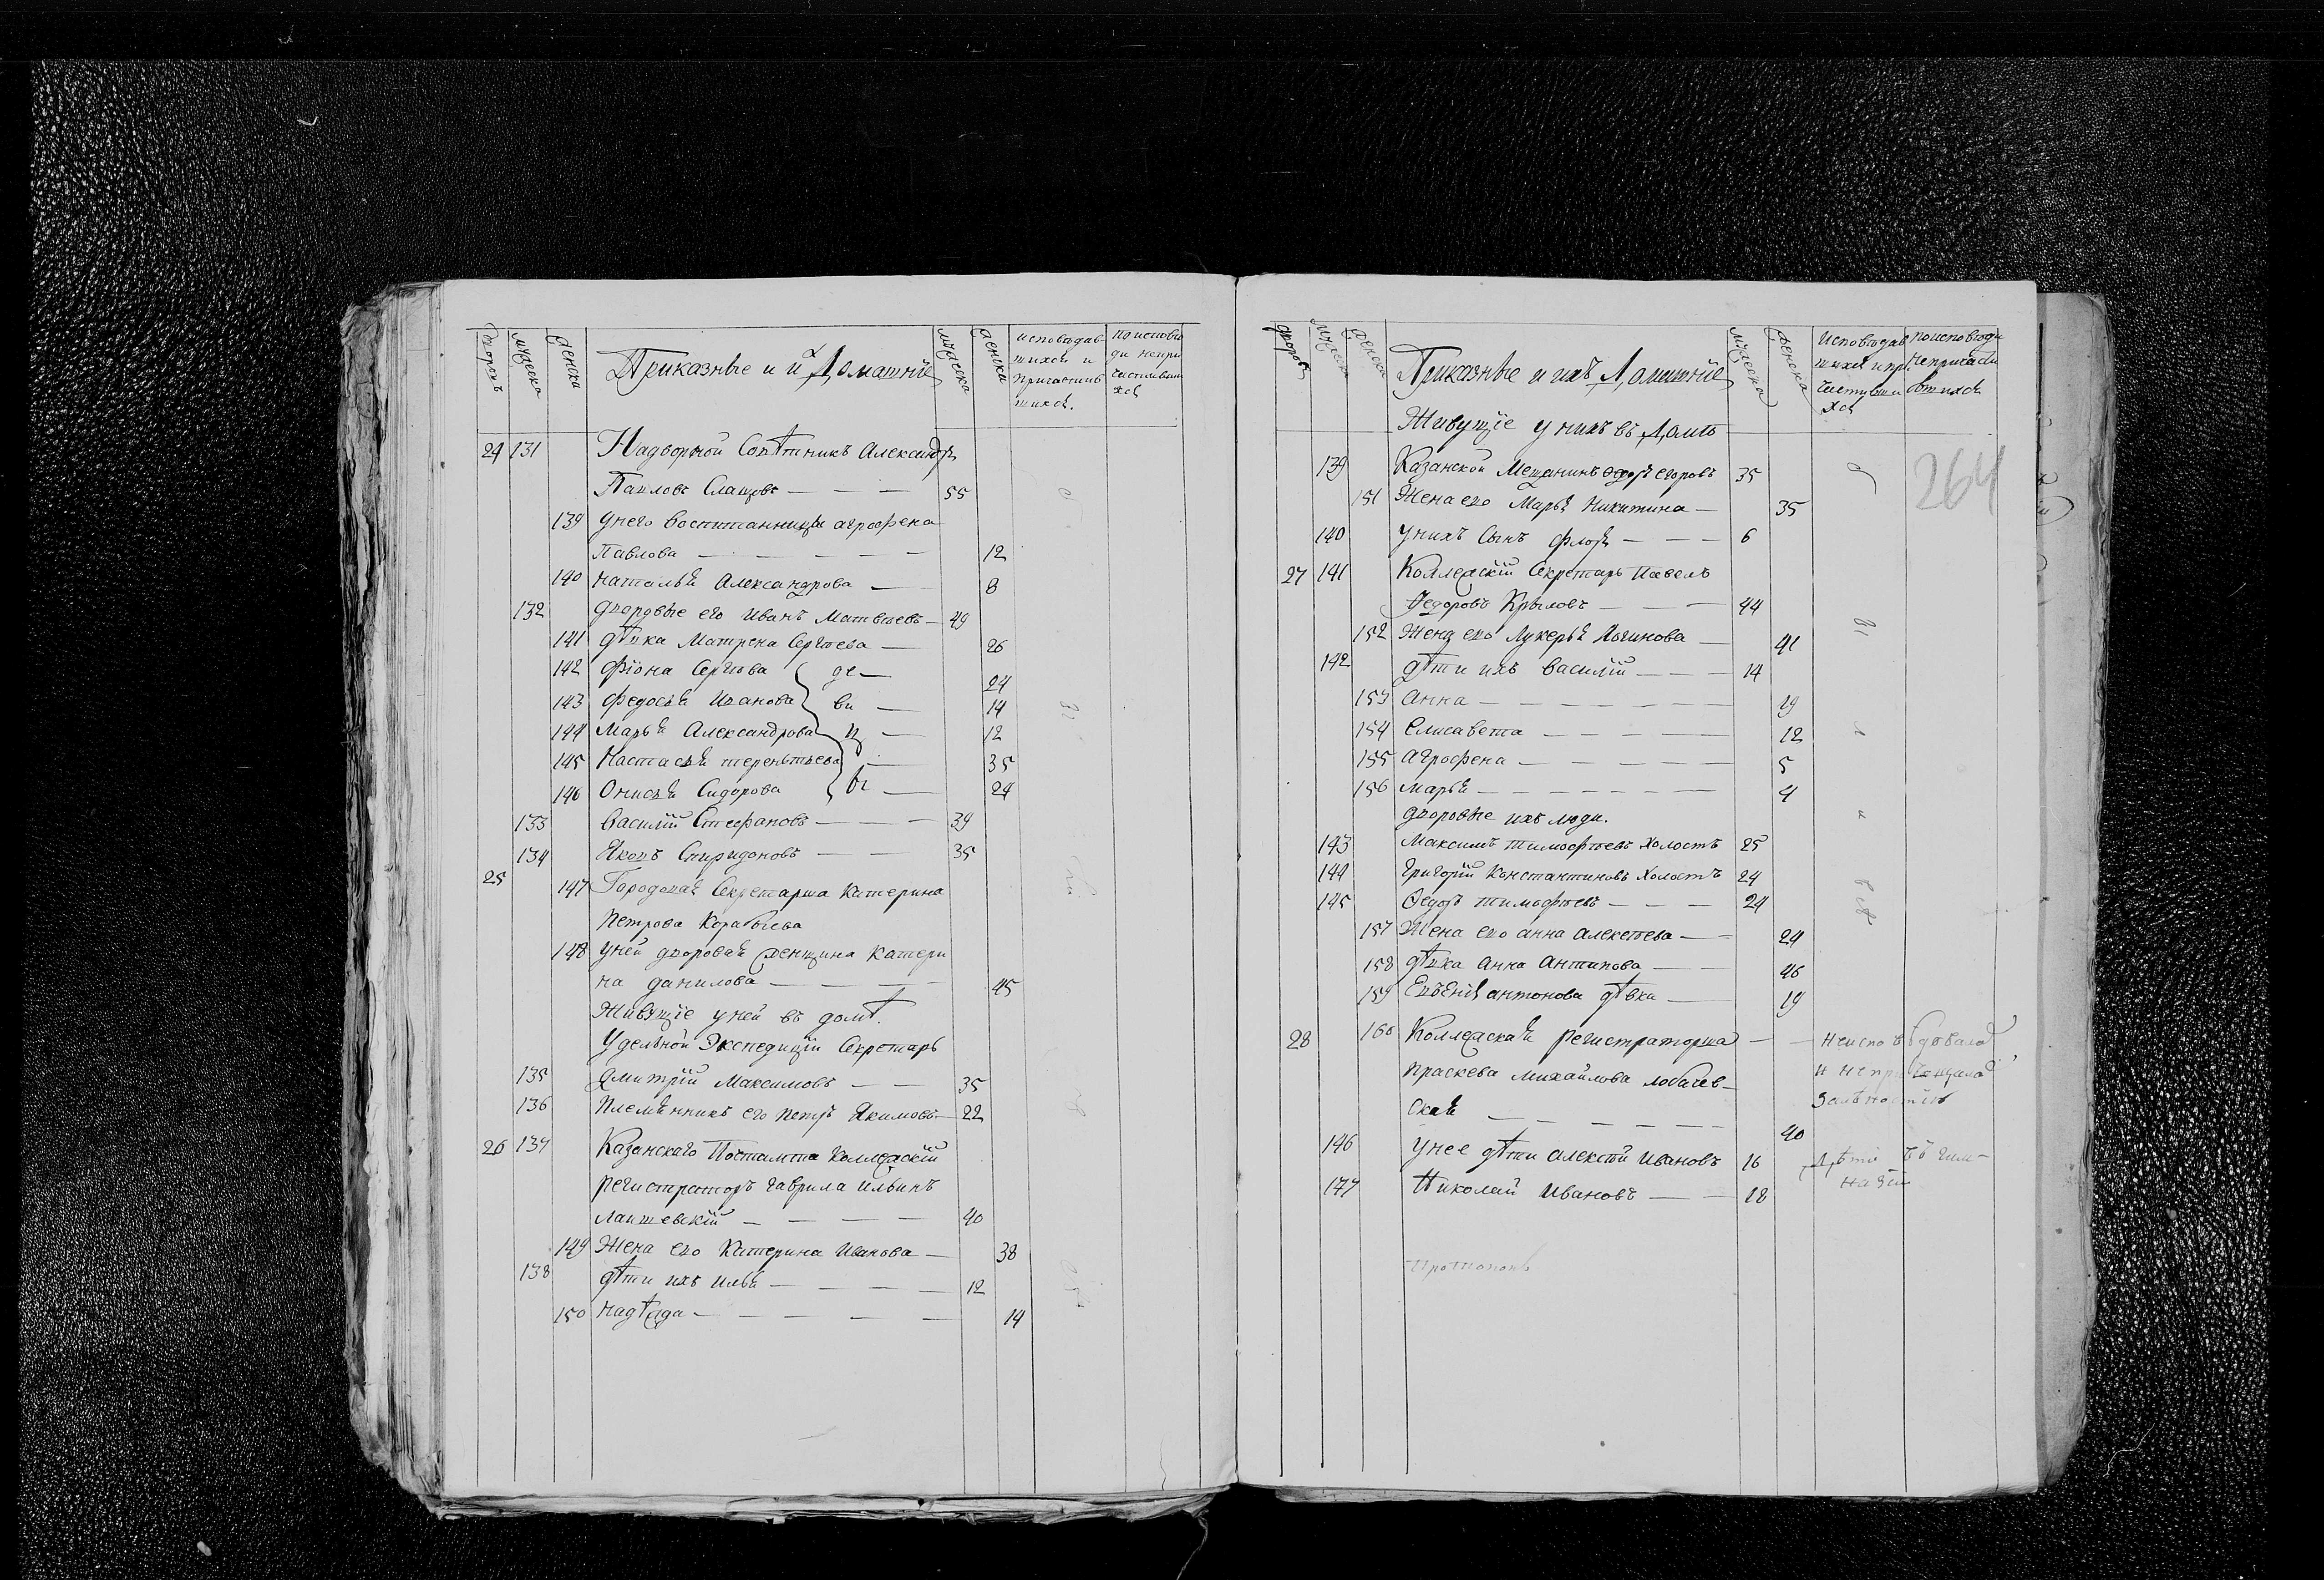 дворовъ мужеска женска Приказные и ихъ Домашніе мужеска женска исповѣдавшихся и причастившихся. по исповѣди непричастившихся
24 131 Надворной Совѣтникъ Александръ
Павловъ Слацовъ — — — 55
139 у него воспитанницы агрофена
Павлова — — — — — 12
140 Наталья Александрова — 8
132 дворовые его Иванъ Матвѣевъ — 49
141 дѣвка Матрена Сергѣева — 26
142 Фіона Сергѣева де — 24
143 Федосья Иванова ви — 14
144 Марья Александрова ц — 12
145 Настасья терентьева — 35
146 Онисья Сидорова — 24
133 Василій Стефановъ — — — 39
134 Яковъ Спиридоновъ — — 35
25 147 Городовая Секретарша Катерина
Петрова Коработева
148 у ней дворовая женщина Катери
на данилова — — — — 45
Живущіе у ней въ домѣ.
Удельной Экспедиціи Секретарь
135 Дмитрій Максимовъ — — 35
136 Племянникъ его петръ Якимовъ — 22
26 137 Казанскаго Почтамта Коллежскій
регистраторъ гаврила ильинъ
Лаптевскій — — — — 40
149 Жена его Катерина Иванова — 38
138 дѣти ихъ илья — — — — 12
150 Надѣжда — — — — — 14
дворовъ мужеска женска Приказные и ихъ Домашніе мужеска женска Исповѣдавшихся и причастившихся по исповѣди непричастившихся
Живущіе у нихъ въ Домѣ
139 Казанской Мещанинъ Федоръ егоровъ 35
151 Жена его Марья Никитина — 35
140 у нихъ Сынъ флоръ — — — 6
264
27 141 Коллежскій Секретарь Павелъ
Федоровъ Крыловъ — — — 44
152 Жена его Лукерья Логинова — 41
142 дѣти ихъ василій — — — 14
153 анна — — — — — — 19
154 Елисавета — — — — 12
155 агрофена — — — — — 5
156 Марья — — — — — — 4
дворовые ихъ люди.
143 Максимъ тимофѣевъ холостъ 25
144 григорій Константиновъ холостъ 24
145 Федоръ тимофѣевъ — — — 24
157 Жена его анна алексѣева — 24
158 дѣвка анна Антипова — 46
159 Евгенія антонова дѣвка — 19
28 160 Коллежская регистраторша — — неисповѣдовалась
праскева михайлова лобачев- и непричащалась
ская — — — — — 40
146 у нее дѣти алексѣй Ивановъ 16 Дѣти въ гим-
147 Николай Ивановъ — — 18 назіи
Протопопъ